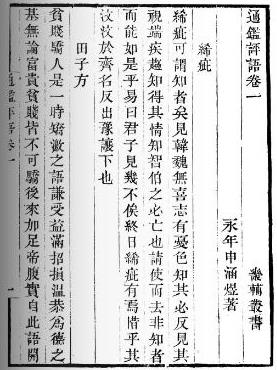 通鑑評語卷一
畿輔叢書
永年申涵煜著
絺疵
絺疵可謂知者矣見韓魏無喜志有憂色知其必反見其
視端疾趨知得其情知智伯之必亡也請使而去非知者
而能如是乎易曰君子見幾不俟終日絺疵有焉惜乎其
汶汶於齊名反出豫讓下也
田子方
貧賤驕人是一時矯激之語謙受益滿招損溫恭爲德之
基無論富貴貧賤皆不可驕後來加足帝腹實自此語開
通鑑評語卷一
一